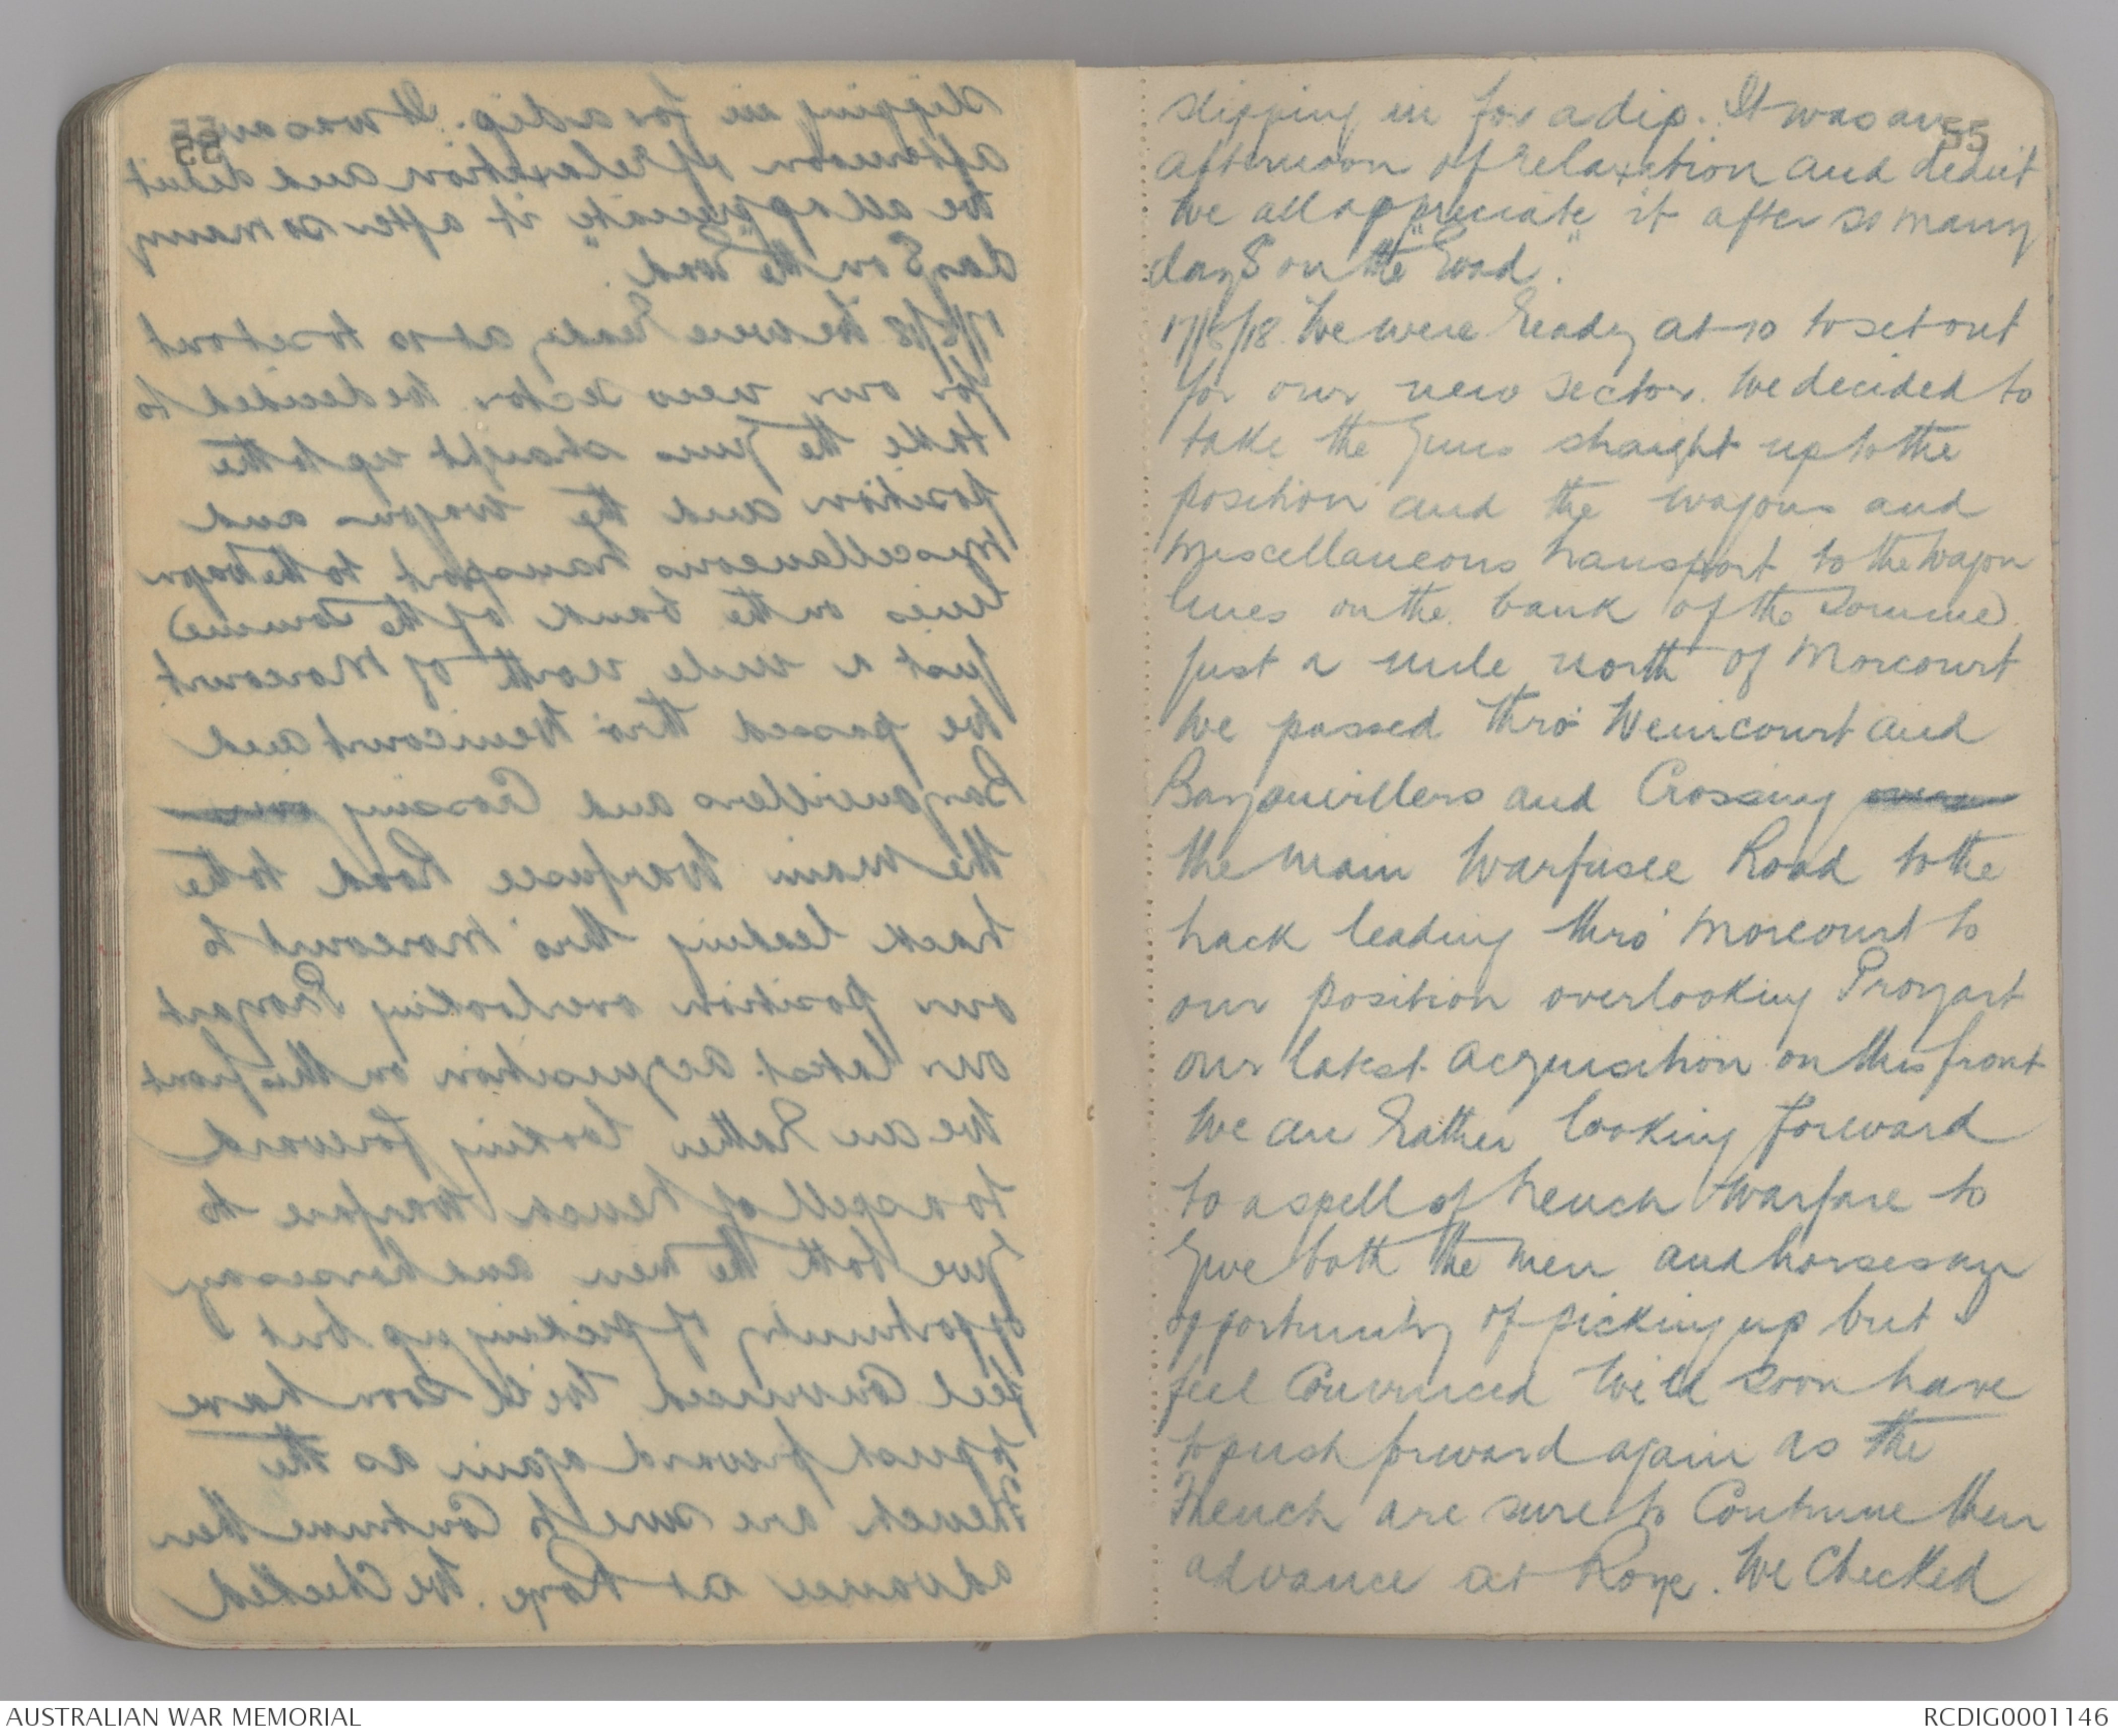 55
slipping in for a dip. It was an
afternoon of relaxation and didn't
we all appreciate it after so many
days on the "road".
17/8/18 We were ready at 10 to set out
for our new sector. We decided to
take the guns straight up to the
position and the wagons and
miscellaneous transport to the wagon
lines on the bank of the Somme
just a mile north of Morcourt
We passed thro' Weincourt and
Bayonvillers and Crossing
the main Warfusee Road to the
track leading thro' Morcourt to
our position overlooking Proyart
our latest acquisition on this front
We are rather looking forward
to a spell of trench warfare to
give both the men and horses any
opportunity of picking up but
feel Convinced We'll soon have
to push forward again as the
French are sure to Continue their
advance at Roye. We Checked
AUSTRALIAN WAR MEMORIAL
RCDIG0001146